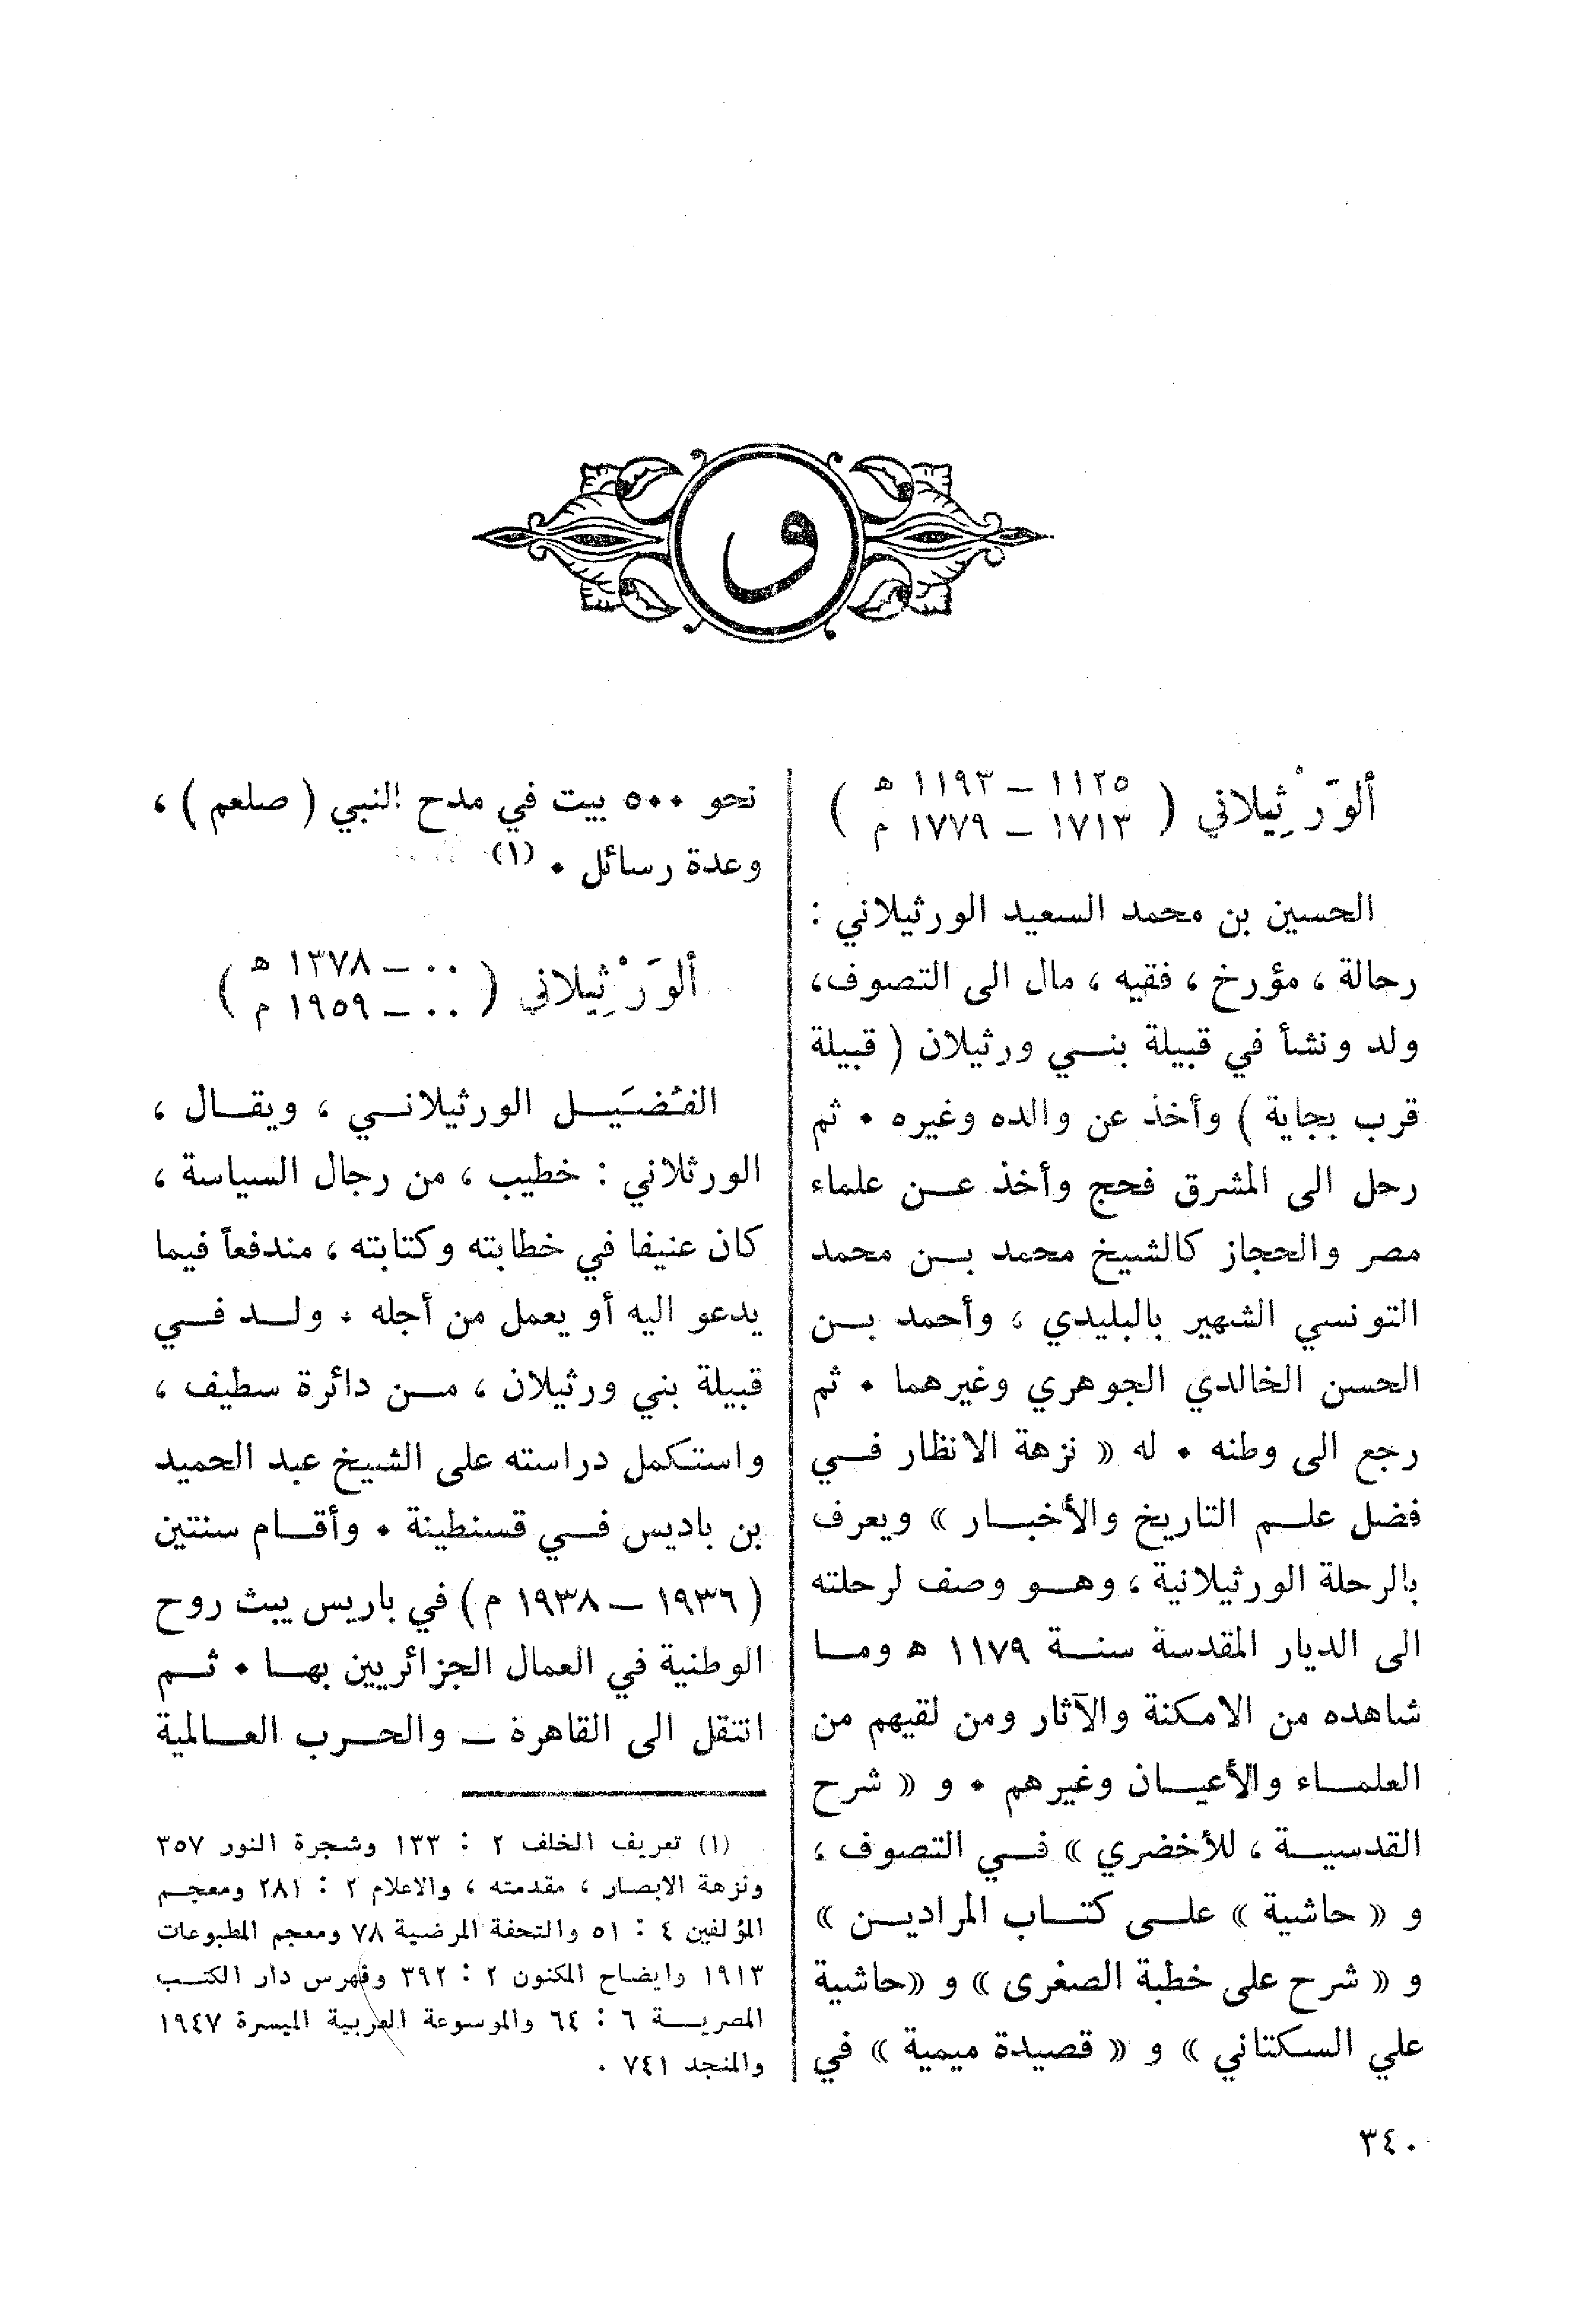 و
ألوَرْثِيلاني ( ١١٢٥ – ١١٩٣ ه
١٧١٣ – ١٧٧٩ م )
الحسين بن محمد السعيد الورثيلاني :
رحالة ، مؤرخ ، فقيه ، مال الى التصوف،
ولد ونشأ في قبيلة بنــي ورثيلان ( قبيلة
قرب بجاية ) وأخذ عن والده وغيره • ثم
رحل الى المشرق فحج وأخذ عــن علماء
مصر والحجاز كالشيخ محمد بــن محمد
التونسي الشهير بالبليدي ، وأحمد بــن
الحسن الخالدي الجوهري وغيرهما • ثم
رجع الى وطنه • له « نزهة الانظار فــي
فضل علــم التاريخ والأخبــار » ويعرف
بالرحلة الورثيلانية ، وهــو وصف لرحلته
الى الديار المقدسة سنــة ١١٧٩ ه ومــا
شاهده من الامكنة والآثار ومن لقيهم من
العلمــاء والأعيــان وغيرهم • و « شرح
القدسيــة ، للأخضري » فــي التصوف ،
و « حاشية » علــى كتــاب المراديــن »
و « شرح على خطبة الصغرى » و «حاشية
علي السكتاني » و « قصيدة ميمية » في
نحو ٥٠٠ بيت في مدح النبي ( صلعم ) ،
وعدة رسائل • (١)
ألوَرْثِيلاني ( ٠٠ – ١٣٧٨ ه
٠٠ – ١٩٥٩ م )
الفُضَيــل الورثيلانــي ، ويقــال ،
الورثلاني : خطيب ، من رجال السياسة ،
كان عنيفا في خطابته وكتابته ، مندفعاً فيما
يدعو اليه أو يعمل من أجله • ولــد فــي
قبيلة بني ورثيلان ، مــن دائرة سطيف ،
واستكمل دراسته على الشيخ عبد الحميد
بن باديس فــي قسنطينة • وأقــام سنتين
( ١٩٣٦ – ١٩٣٨ م ) في باريس يبث روح
الوطنية في العمال الجزائريين بهــا • ثــم
انتقل الى القاهرة – والحــرب العــالمية
(١) تعريف الخلف ٢ : ١٣٣ وشجرة النور ٣٥٧
ونزهة الابصار ، مقدمته ، والاعلام ٢ : ٢٨١ ومعجــم
المؤلفين ٤ : ٥١ والتحفة المرضية ٧٨ ومعجم المطبوعات
١٩١٣ وايضاح المكنون ٢ : ٣٩٢ وفهرس دار الكتــب
المصريــة ٦ : ٦٤ والموسوعة العربية الميسرة ١٩٤٧
والمنجد ٧٤١ .
٣٤٠